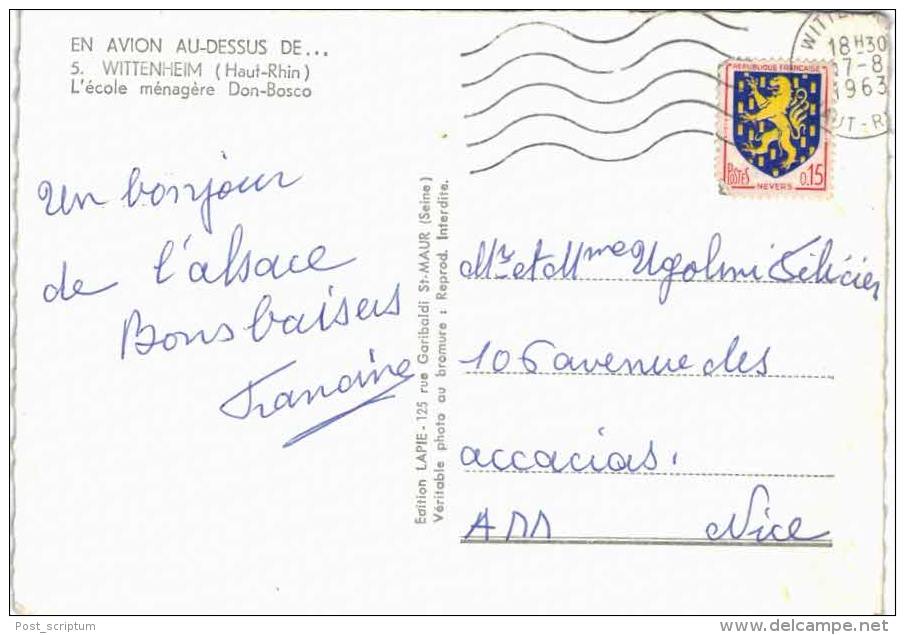 EN AVION AU-DESSUS DE...
5. WITTENHEIM (Haut-Rhin)
L'école ménagère Don-Bosco
Un bonjour
de l'alsace
Bons baisers
Francine
Edition LAPIE - 125 rue Garibaldi St-MAUR (Seine)
Véritable photo au bromure : Reprod. Interdite.
18H30
17-8
1963
REPUBLIQUE FRANÇAISE
POSTES
0.15
NEVERS
Mr et Mme Ugolini Félicien
106 avenue des
accacias.
Nice
Post_scriptum
delcampe.net